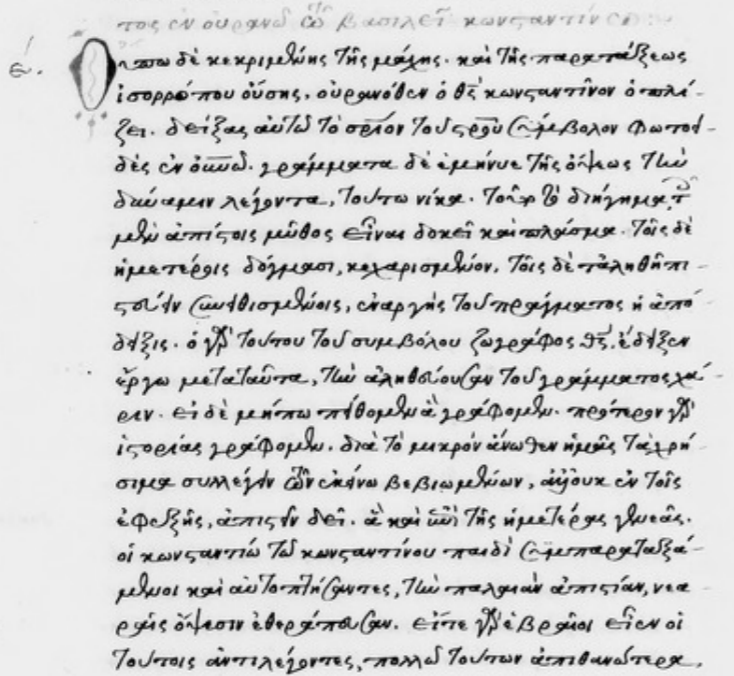 τος ἐν οὐρανῶ τῶ βασιλεῖ κωνσταντίνω:
ε΄. Οὔπω δὲ κεκριμένης τῆς μάχης. καὶ τῆς παρατάξεως
ἰσορρόπου οὔσης, οὐρανόθεν ὁ θς κωνσταντῖνον ὁπλί-
ζει. δείξας αὐτῶ τὸ σημεῖον τοῦ στροῦ σύμβολον φωτοει-
δὲς ἐν. γράμματα δὲ ἐμήνυε τῆς ὄψεως τὴν
δύναμιν λέγοντα, τούτω νίκα. τοῦτο τὸ διήγημα τ
μὲν ἀπίστοις μῦθος εἶναι δοκεῖ καὶ πλάσμα. τοῖς δὲ
ἡμετέροις δόγμασι, κεχαρισμένον. τοῖς δὲ τἀληθῆ πι-
στεύειν συνειθισμένοις, ἐναργὴς τοῦ πράγματος ἡ ἀπό-
δειξις. ὁ γὰρ τούτου τοῦ συμβόλου ζωγράφος θς, ἔδειξεν
ἔργω μετα ταῦτα, τὴν ἀληθεύουσαν τοῦ γράμματος χά-
ριν. εἰ δὲ μήπω πειθομεν ἃ γράφομεν. πρότερον γὰρ
ἱστορίας γράφομεν. διὰ τὸ μικρὸν ἄνωθεν ἡμᾶς τὰ χρή-
σιμα συλλέγειν τῶν ἐκείνω βεβιωμένων, ἀλλ' οὐκ ἐν τοῖς
ἐφεξῆς, ἀπιστεῖν δεῖ. ἃ καὶ ἐπὶ τῆς ἡμετέρας γενεᾶς.
οἱ κωνσταντίω τῶ κωνσταντίνου παιδὶ συμπαραταξά-
μενοι καὶ αὐτοπτήσαντες, τὴν παλαιὰν ἀπιστίαν, νεα-
ραῖς ὄψεσιν ἐθεράπευσαν. εἴτε γὰρ ἑβραῖοι εἶεν οἱ
τούτοις ἀντιλέγοντες, πολλῶ τούτων ἀπιθανώτερα,